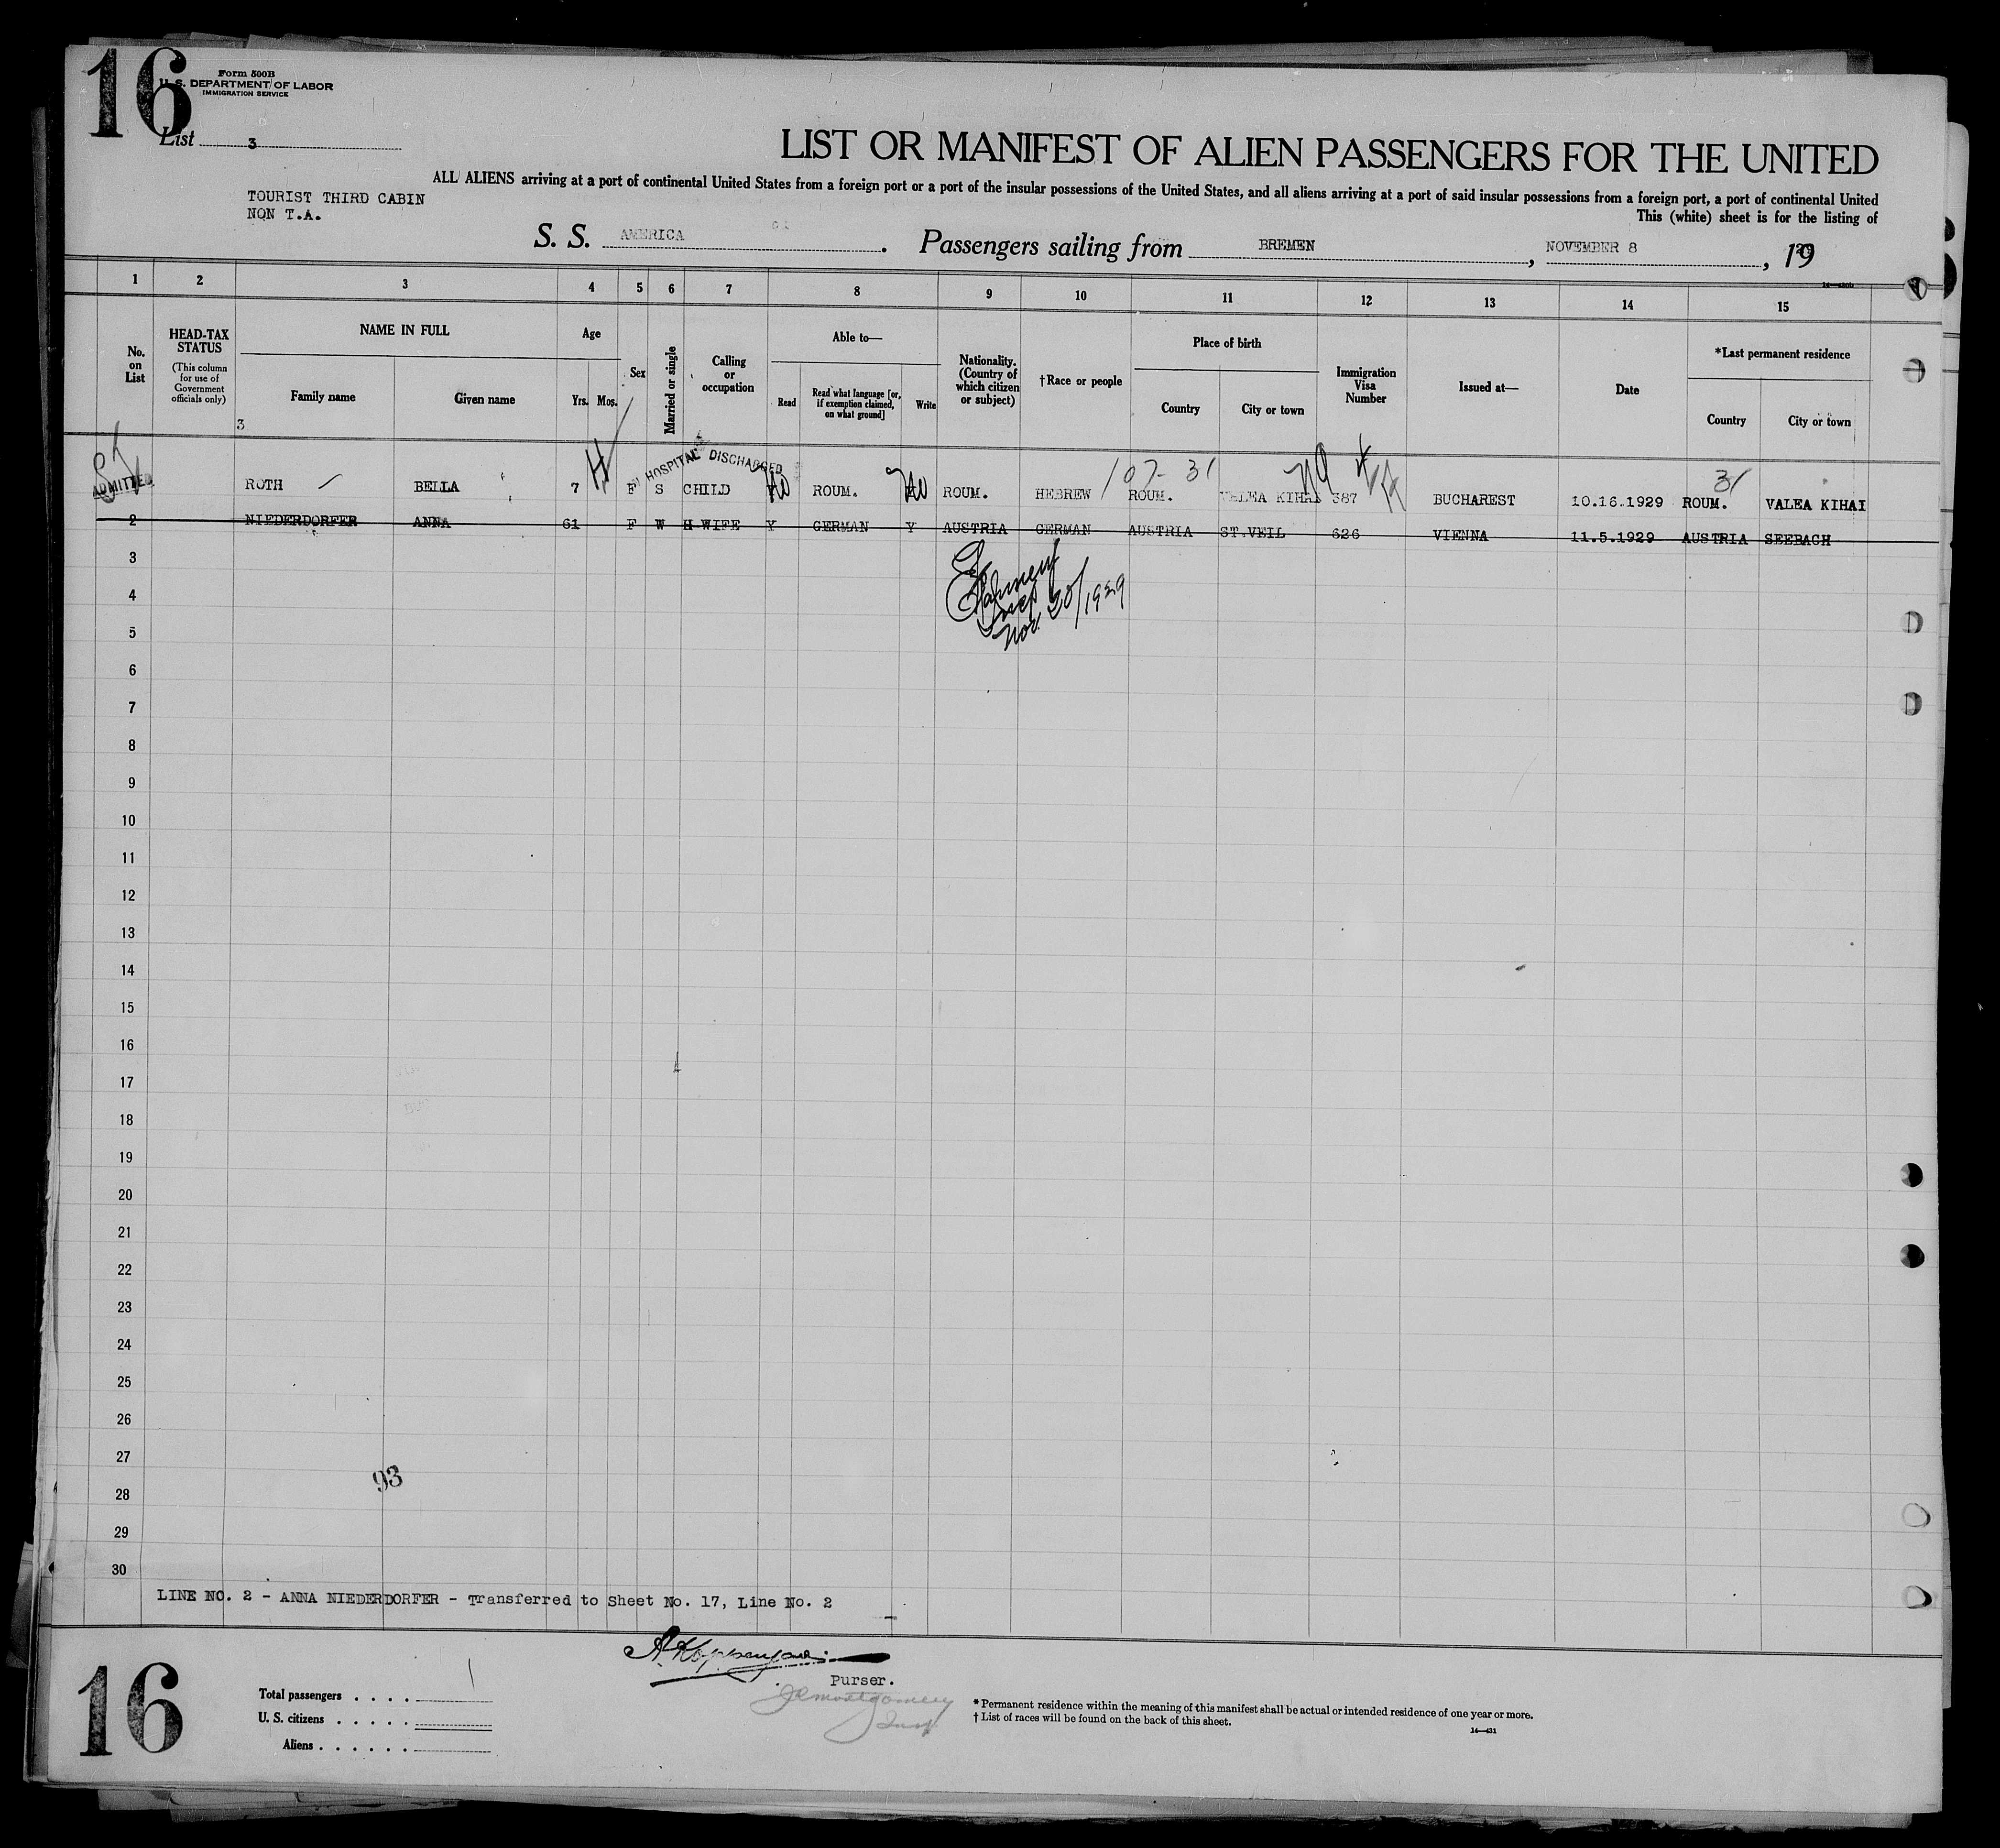 16
Form 500B
U. S. DEPARTMENT OF LABOR
IMMIGRATION SERVICE
List 3
LIST OR MANIFEST OF ALIEN PASSENGERS FOR THE UNITED
ALL ALIENS arriving at a port of continental United States from a foreign port or a port of the insular possessions of the United States, and all aliens arriving at a port of said insular possessions from a foreign port, a port of continental United
This (white) sheet is for the listing of
TOURIST THIRD CABIN
NON T.A.
S. S. AMERICA. Passengers sailing from BREMEN, NOVEMBER 8, 19
1 2 3 4 5 6 7 8 9 10 11 12 13 14 15
No. on List
HEAD-TAX STATUS
(This column for use of Government officials only)
NAME IN FULL
Family name
Given name
Age
Yrs. Mos.
Sex
Married or single
Calling or occupation
Able to—
Read
Read what language [or, if exemption claimed, on what ground]
Write
Nationality. (Country of which citizen or subject)
†Race or people
Place of birth
Country
City or town
Immigration Visa Number
Issued at—
Date
*Last permanent residence
Country
City or town
3
HOSPITAL DISCHARGED
107-31
31
ADMITTED ROTH BELLA 7 F S CHILD No ROUM. No ROUM. HEBREW ROUM. VALEA KIHAI 387 BUCHAREST 10.16.1929 ROUM. VALEA KIHAI
2 NIEDERDORFER ANNA 61 F W H-WIFE Y GERMAN Y AUSTRIA GERMAN AUSTRIA ST.VEIL 626 VIENNA 11.5.1929 AUSTRIA SEEBACH
3
Nov. 20/1929
4
5
6
7
8
9
10
11
12
13
14
15
16
17
18
19
20
21
22
23
24
25
26
27
93
28
29
30
LINE NO. 2 - ANNA NIEDERDORFER - Transferred to Sheet No. 17, Line No. 2
Purser.
J. Montgomery
Insp.
16
Total passengers . . . . 1
U. S. citizens . . . . .
Aliens . . . . . .
* Permanent residence within the meaning of this manifest shall be actual or intended residence of one year or more.
† List of races will be found on the back of this sheet.
14—431